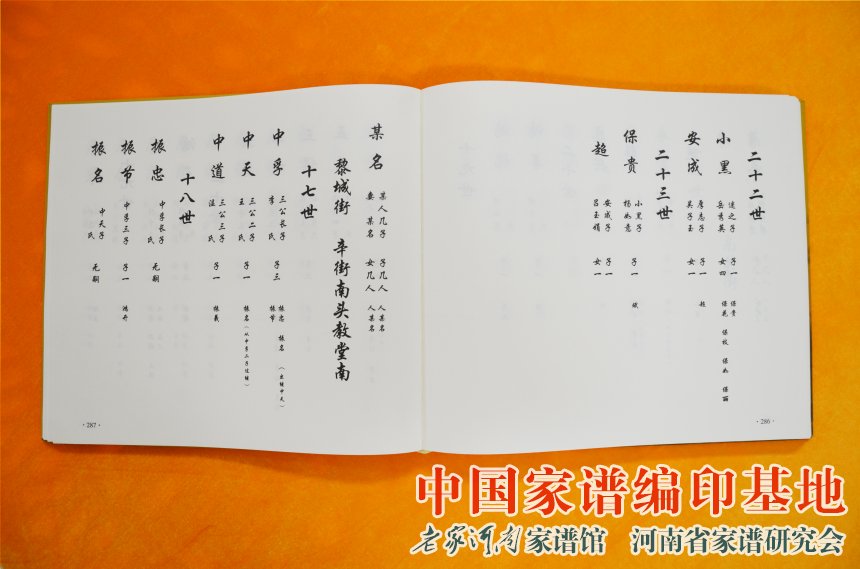 二十二世
小黑 遂之子 子一 保贵
岳秀英 女四 保花 保枝 保如 保丽
安成 唐志子 子一 超
吴子玉 女一
二十三世
保贵 小黑子 子一 斌
杨如意
超 安成子
吕玉娟 女一
·286·
某名 某人几子 子几人 人某名
妻 某名 女几人 人某名
黎城街 辛街南头教堂南
十七世
中孚 三公长子 子三 振忠 振名（出继中天）
李氏 振节
中天 三公二子 子一 振名（从中孚二子过继）
王氏
中道 三公三子 子一 振义
汪氏
十八世
振忠 中孚长子 无嗣
氏
振节 中孚三子 子一 鸿升
氏
振名 中天子 无嗣
氏
·287·
中国家谱编印基地
老家河南家谱馆 河南省家谱研究会